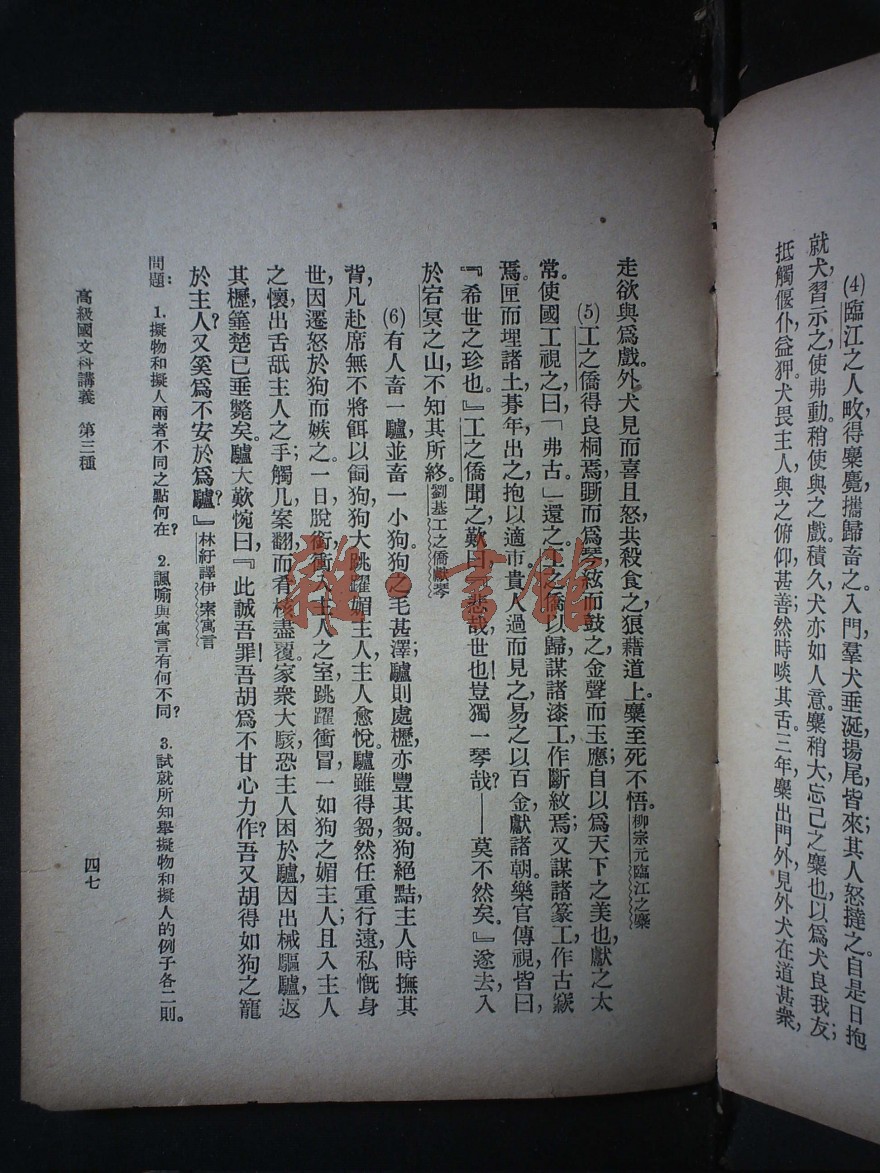 (4)臨江之人畋得麋麑攜歸畜之。入門羣犬垂涎揚尾皆來其人怒撻之自是日抱
就犬習示之使弗動稍使與之戲積久犬亦如人意麋稍大忘己之麋也以爲犬良我友;
抵觸偃仆益狎。犬畏主人與之俯仰甚善然時啖其舌三年麋出門外見外犬在道甚衆,
走欲與爲戲。外犬見而喜且怒共殺食之狼藉道上。麋至死不悟。柳宗元臨江之麋
(5)工之僑得良桐焉斲而爲琴絃而鼓之金聲而玉應;自以爲天下之美也獻之太
常。使國工視之曰「弗古。」還之。工之僑以歸謀諸漆工作斷紋焉;又謀諸篆工作古窾
焉。匣而埋諸土朞年出之抱以適市。貴人過而見之易之以百金獻諸朝。樂官傳視皆曰,
『希世之珍也。』工之僑聞之歎曰『悲哉世也!豈獨一琴哉?——莫不然矣。』遂去入
於宕冥之山不知其所終。劉基工之僑獻琴
(6)有人畜一驢並畜一小狗。狗之毛甚澤;驢則處櫪亦豐其芻。狗絕黠主人時撫其
背,凡赴席無不將餌以飼狗狗大跳躍媚主人主人愈悅。驢雖得芻然任重行遠私慨身
世因遷怒於狗而嫉之。一日脫銜衝入主人之室跳躍衝冒,一如狗之媚主人;且入主人
之懷,出舌舐主人之手;觸几案翻而肴核盡覆。家衆大駭恐主人困於驢因出械驅驢返
其櫪,箠楚已垂斃矣。驢大歎惋曰,『此誠吾罪!吾胡爲不甘心力作?吾又胡得如狗之寵
於主人?又奚爲不安於爲驢?』林紓譯伊索寓言
問題: 1.擬物和擬人兩者不同之點何在? 2.諷喻與寓言有何不同? 3.試就所知舉擬物和擬人的例子各二則。
高級國文科講義 第三種
四七
雜·書館